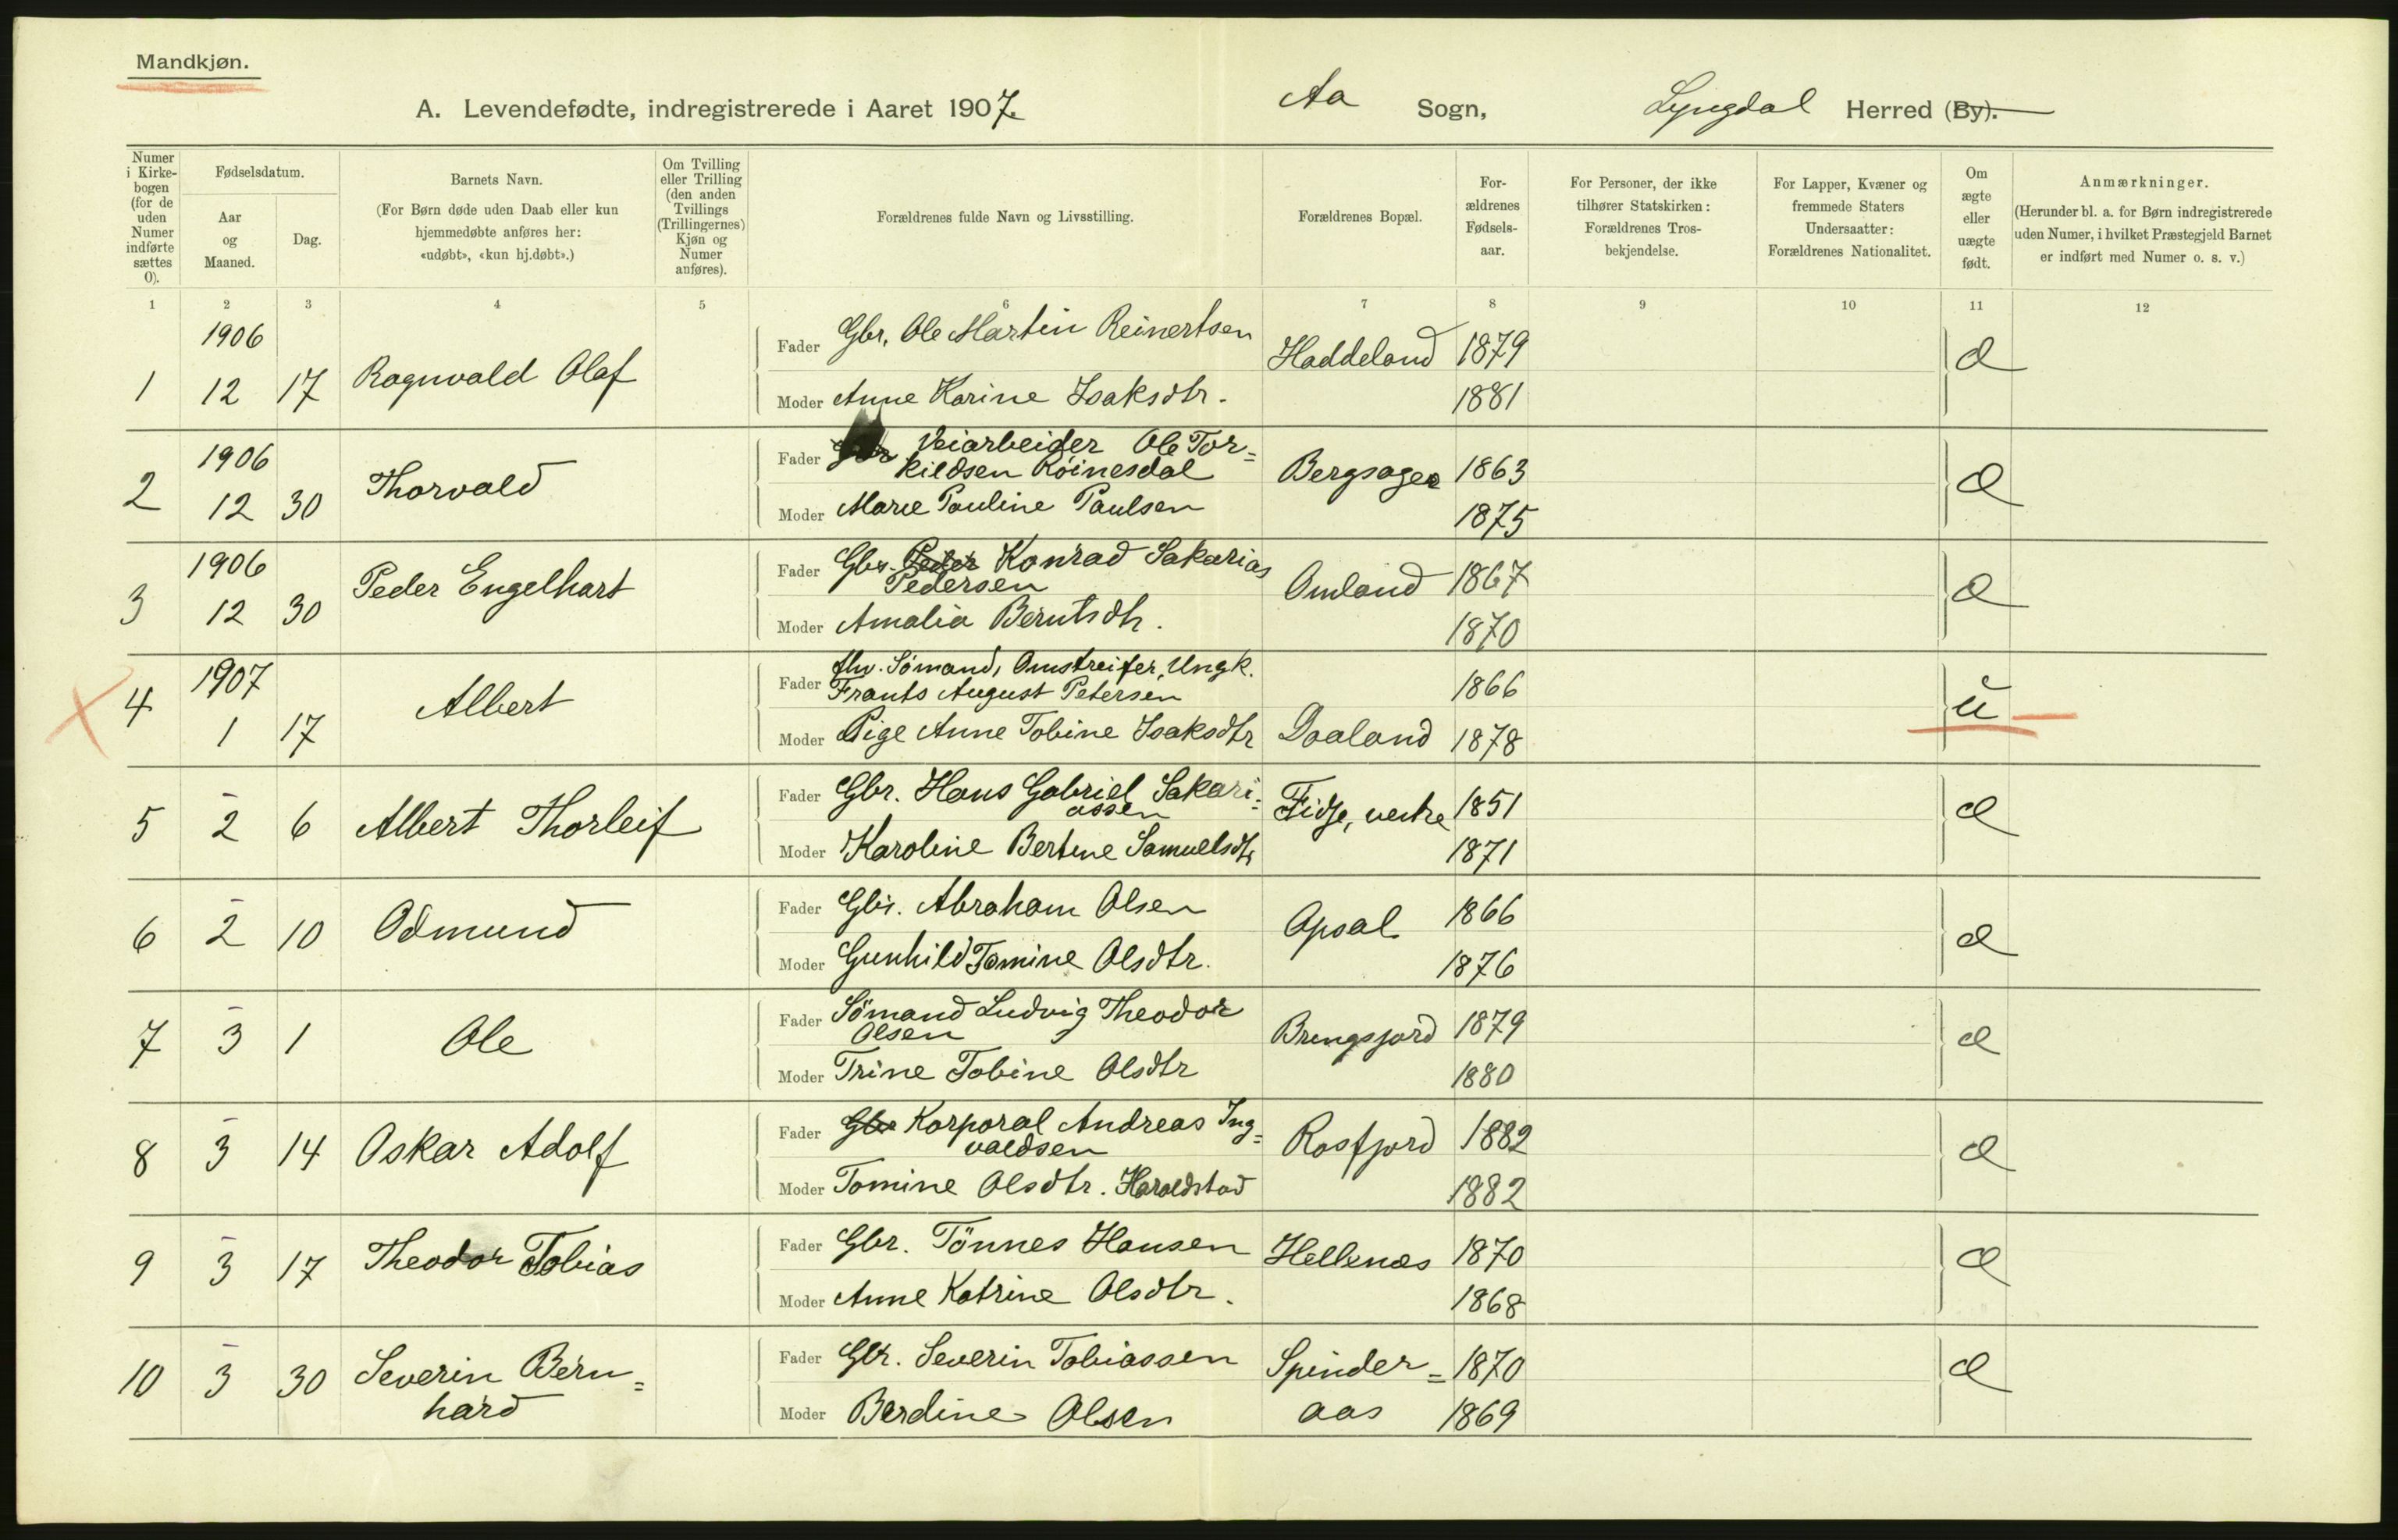 Mandkjøn.
A. Levendefødte, indregistrerede i Aaret 1907. Aa Sogn, Lyngdal Herred (By).
Numer i Kirkebogen (for de uden Numer indførte sættes 0).
Fødselsdatum.
Aar og Maaned.
Dag.
Barnets Navn.
(For Børn døde uden Daab eller kun hjemmedøbte anføres her: «udøbt», «kun hj.døbt».)
Om Tvilling eller Trilling (den anden Tvillings (Trillingernes) Kjøn og Numer anføres).
Forældrenes fulde Navn og Livsstilling.
Forældrenes Bopæl.
Forældrenes Fødselsaar.
For Personer, der ikke tilhører Statskirken: Forældrenes Trosbekjendelse.
For Lapper, Kvæner og fremmede Staters Undersaatter: Forældrenes Nationalitet.
Om ægte eller uægte født.
Anmærkninger.
(Herunder bl. a. for Børn indregistrerede uden Numer, i hvilket Præstegjeld Barnet er indført med Numer o. s. v.)
1 2 3 4 5 6 7 8 9 10 11 12
1 1906 12 17 Ragnvald Olaf Fader Gbr. Ole Martin Reinertsen Haddeland 1879 æ
Moder Anne Karine Isaksdtr. 1881
2 1906 12 30 Thorvald Fader Gbr Veiarbeider Ole Tor=
kildsen Röinesdal Bergsager 1863 æ
Moder Marie Pauline Paulsen 1875
3 1906 12 30 Peder Engelhart Fader Gbr. Peder Konrad Sakarias
Pedersen Omland 1867 æ
Moder Amalia Berntsdtr. 1870
4 1907 1 17 Albert Fader fhv. Sömand, Omstreifer, Ungk.
Frants August Petersen 1866 u
Moder Pige Anne Tobine Isaksdtr Daaland 1878
5 - 2 6 Albert Thorleif Fader Gbr. Hans Gabriel Sakari=
assen Fidje, vestre 1851 æ
Moder Karoline Bertine Samuelsdtr 1871
6 - 2 10 Odmund Fader Gbr. Abraham Olsen Apsal 1866 æ
Moder Gunhild Tomine Olsdtr. 1876
7 - 3 1 Ole Fader Sömand Ludvig Theodor
Olsen Bringsjord 1879 æ
Moder Trine Tobine Olsdtr 1880
8 - 3 14 Oskar Adolf Fader Gbr Korporal Andreas Ing=
valdsen Rosfjord 1882 æ
Moder Tomine Olsdtr. Haraldstad 1882
9 - 3 17 Theodor Tobias Fader Gbr. Tönnes Hansen Hellenæs 1870 æ
Moder Anne Katrine Olsdtr. 1868
10 - 3 30 Severin Bern= Fader Gbr. Severin Tobiassen Spinder= 1870 æ
hard Moder Berdine Olsen aas 1869